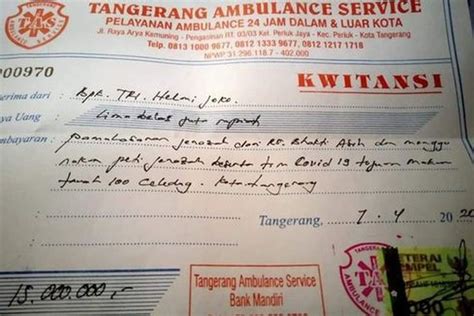 TANGERANG AMBULANCE SERVICE
PELAYANAN AMBULANCE 24 JAM DALAM & LUAR KOTA
Jl. Raya Arya Kemuning - Pengasinan RT. 03/03 Kel. Periuk Jaya - Kec. Periuk, Kota Tangerang
Telp. 0813 1000 9677, 0812 1333 9677, 0812 1217 1718
NPWP 31.296.118.7 - 402.000
TAS
P00970
KWITANSI
erima dari : Bpk. TRI. Helmi Joko.
ya Uang : Lima belas juta rupiah
embayaran : pemakaman jenazah dari RS. Bhakti Asih dan menggu
nakan peti jenazah beserta tim Covid 19 tujuan makam
tanah 100 Celedug. Kota tangerang
Tangerang, 7 - 4 20 20
15.000.000,-
Tangerang Ambulance Service
Bank Mandiri
TANGERANG
TAS
AMBULANCE
METERAI
TEMPEL